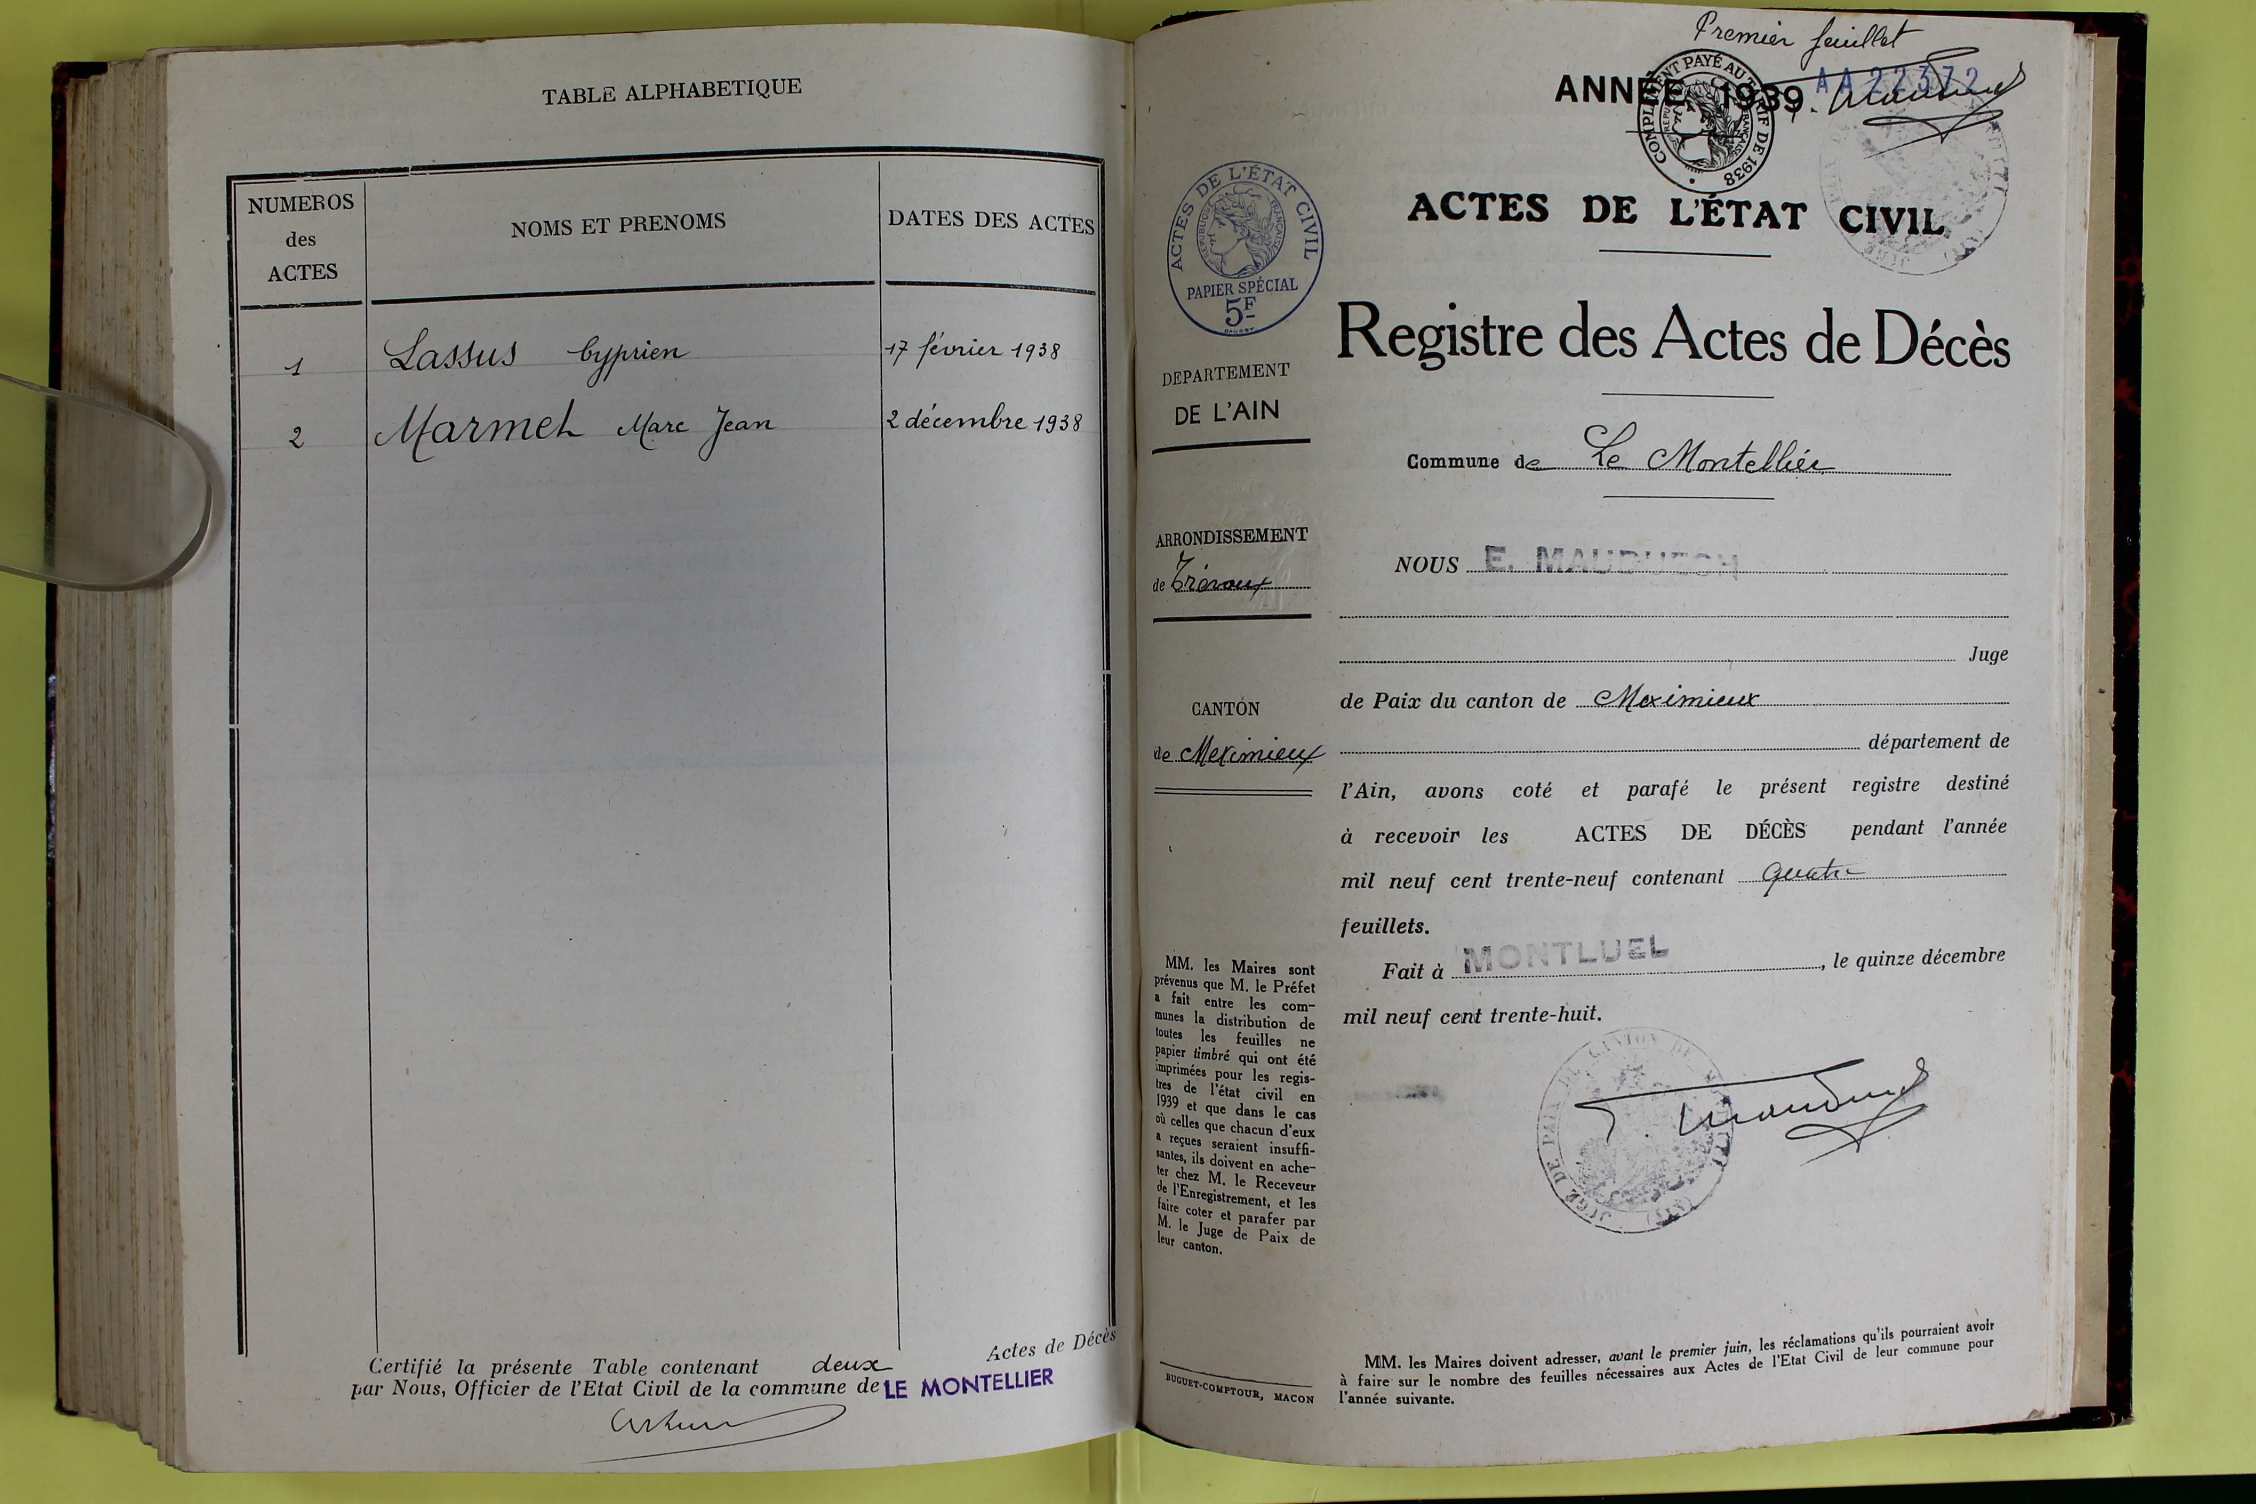 TABLE ALPHABETIQUE
NUMEROS
des
ACTES
NOMS ET PRENOMS
DATES DES ACTES
1 Lassus Cyprien 17 février 1938
2 Marmet Marc Jean 2 décembre 1938
Actes de Décès
Certifié la présente Table contenant deux
par Nous, Officier de l'Etat Civil de la commune de LE MONTELLIER
Premier feuillet
ANNÉE 1939
AA 22372
COMPLÉMENT PAYÉ AU TARIF DE 1938
RÉPUBLIQUE FRANÇAISE
ACTES DE L'ÉTAT CIVIL
RÉPUBLIQUE FRANÇAISE
PAPIER SPÉCIAL
5F
ACTES DE L'ÉTAT CIVIL
Registre des Actes de Décès
DEPARTEMENT
DE L'AIN
Commune de Le Montellier
ARRONDISSEMENT
de Trévoux
NOUS E. MAUDUECH
Juge
de Paix du canton de Meximieux
CANTON
de Meximieux
département de
l'Ain, avons coté et parafé le présent registre destiné
à recevoir les ACTES DE DÉCÈS pendant l'année
mil neuf cent trente-neuf contenant quatre
feuillets.
Fait à MONTLUEL, le quinze décembre
mil neuf cent trente-huit.
MM. les Maires sont
prévenus que M. le Préfet
a fait entre les com-
munes la distribution de
toutes les feuilles ne
papier timbré qui ont été
imprimées pour les regis-
tres de l'état civil en
1939 et que dans le cas
où celles que chacun d'eux
a reçues seraient insuffi-
santes, ils doivent en ache-
ter chez M. le Receveur
de l'Enregistrement, et les
faire coter et parafer par
M. le Juge de Paix de
leur canton.
BUGUET-COMPTOUR, MACON
MM. les Maires doivent adresser, avant le premier juin, les réclamations qu'ils pourraient avoir
à faire sur le nombre des feuilles nécessaires aux Actes de l'Etat Civil de leur commune pour
l'année suivante.